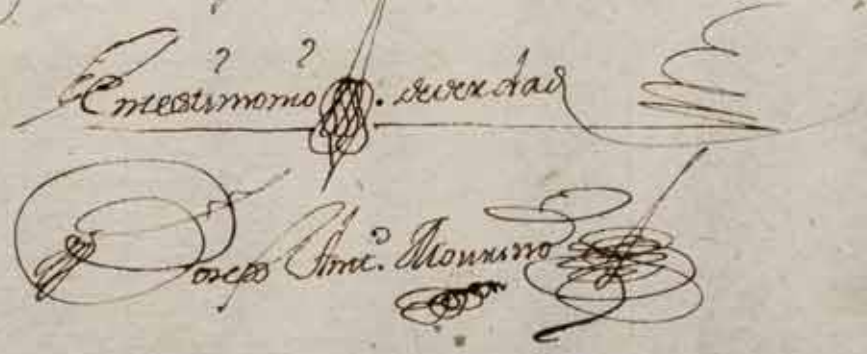 En testimonio . de verdad
Joseph Antº. Mourino